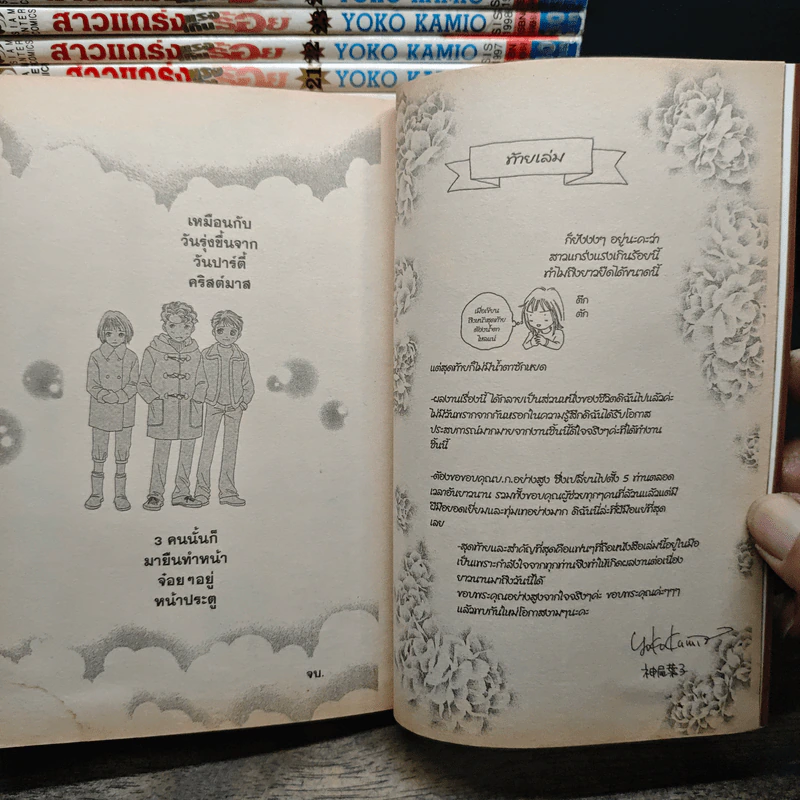 สาวแกร่งแรงเกินร้อย 22 YOKO KAMIO
สาวแกร่งแรงเกินร้อย YOKO KAMIO 1997
สาวแกร่งแรงเกินร้อย 21 YOKO KAMIO
เหมือนกับ
วันรุ่งขึ้นจาก
วันปาร์ตี้
คริสต์มาส
3 คนนั้นก็
มายืนทำหน้า
จ๋อยๆอยู่
หน้าประตู
จบ.
ท้ายเล่ม
ก็ยังงงๆ อยู่นะคะว่า
สาวแกร่งแรงเกินร้อยนี้
ทำไมถึงยาวยืดได้ขนาดนี้
เมื่อเขียน
ถึงหน้าสุดท้าย
ต้องน้ำตา
ไหลแน่
ตึก
ตัก
แต่สุดท้ายก็ไม่มีน้ำตาซักหยด
-ผลงานเรื่องนี้ ได้กลายเป็นส่วนหนึ่งของชีวิตดิฉันไปแล้วค่ะ
ไม่มีวันพรากจากกันหรอกในความรู้สึกดิฉันได้รับโอกาส
ประสบการณ์มากมายจากงานชิ้นนี้ดีใจจริงๆค่ะที่ได้ทำงาน
ชิ้นนี้
-ต้องขอขอบคุณบ.ก.อย่างสูง ซึ่งเปลี่ยนไปตั้ง 5 ท่านตลอด
เวลาอันยาวนาน รวมทั้งขอบคุณผู้ช่วยทุกๆคนที่ล้วนแล้วแต่มี
ฝีมือยอดเยี่ยมและทุ่มเทอย่างมาก ดิฉันนี่ล่ะที่ฝีมือแย่ที่สุด
เลย
-สุดท้ายและสำคัญที่สุดคือแฟนๆที่ถือหนังสือเล่มนี้อยู่ในมือ
เป็นเพราะกำลังใจจากทุกท่านจึงทำให้เกิดผลงานต่อเนื่อง
ยาวนานมาถึงวันนี้ได้
ขอบพระคุณอย่างสูงจากใจจริงๆค่ะ ขอบพระคุณค่ะๆๆๆ
แล้วพบกันใหม่โอกาสงามๆนะคะ
Yoko Kamio
神尾葉子